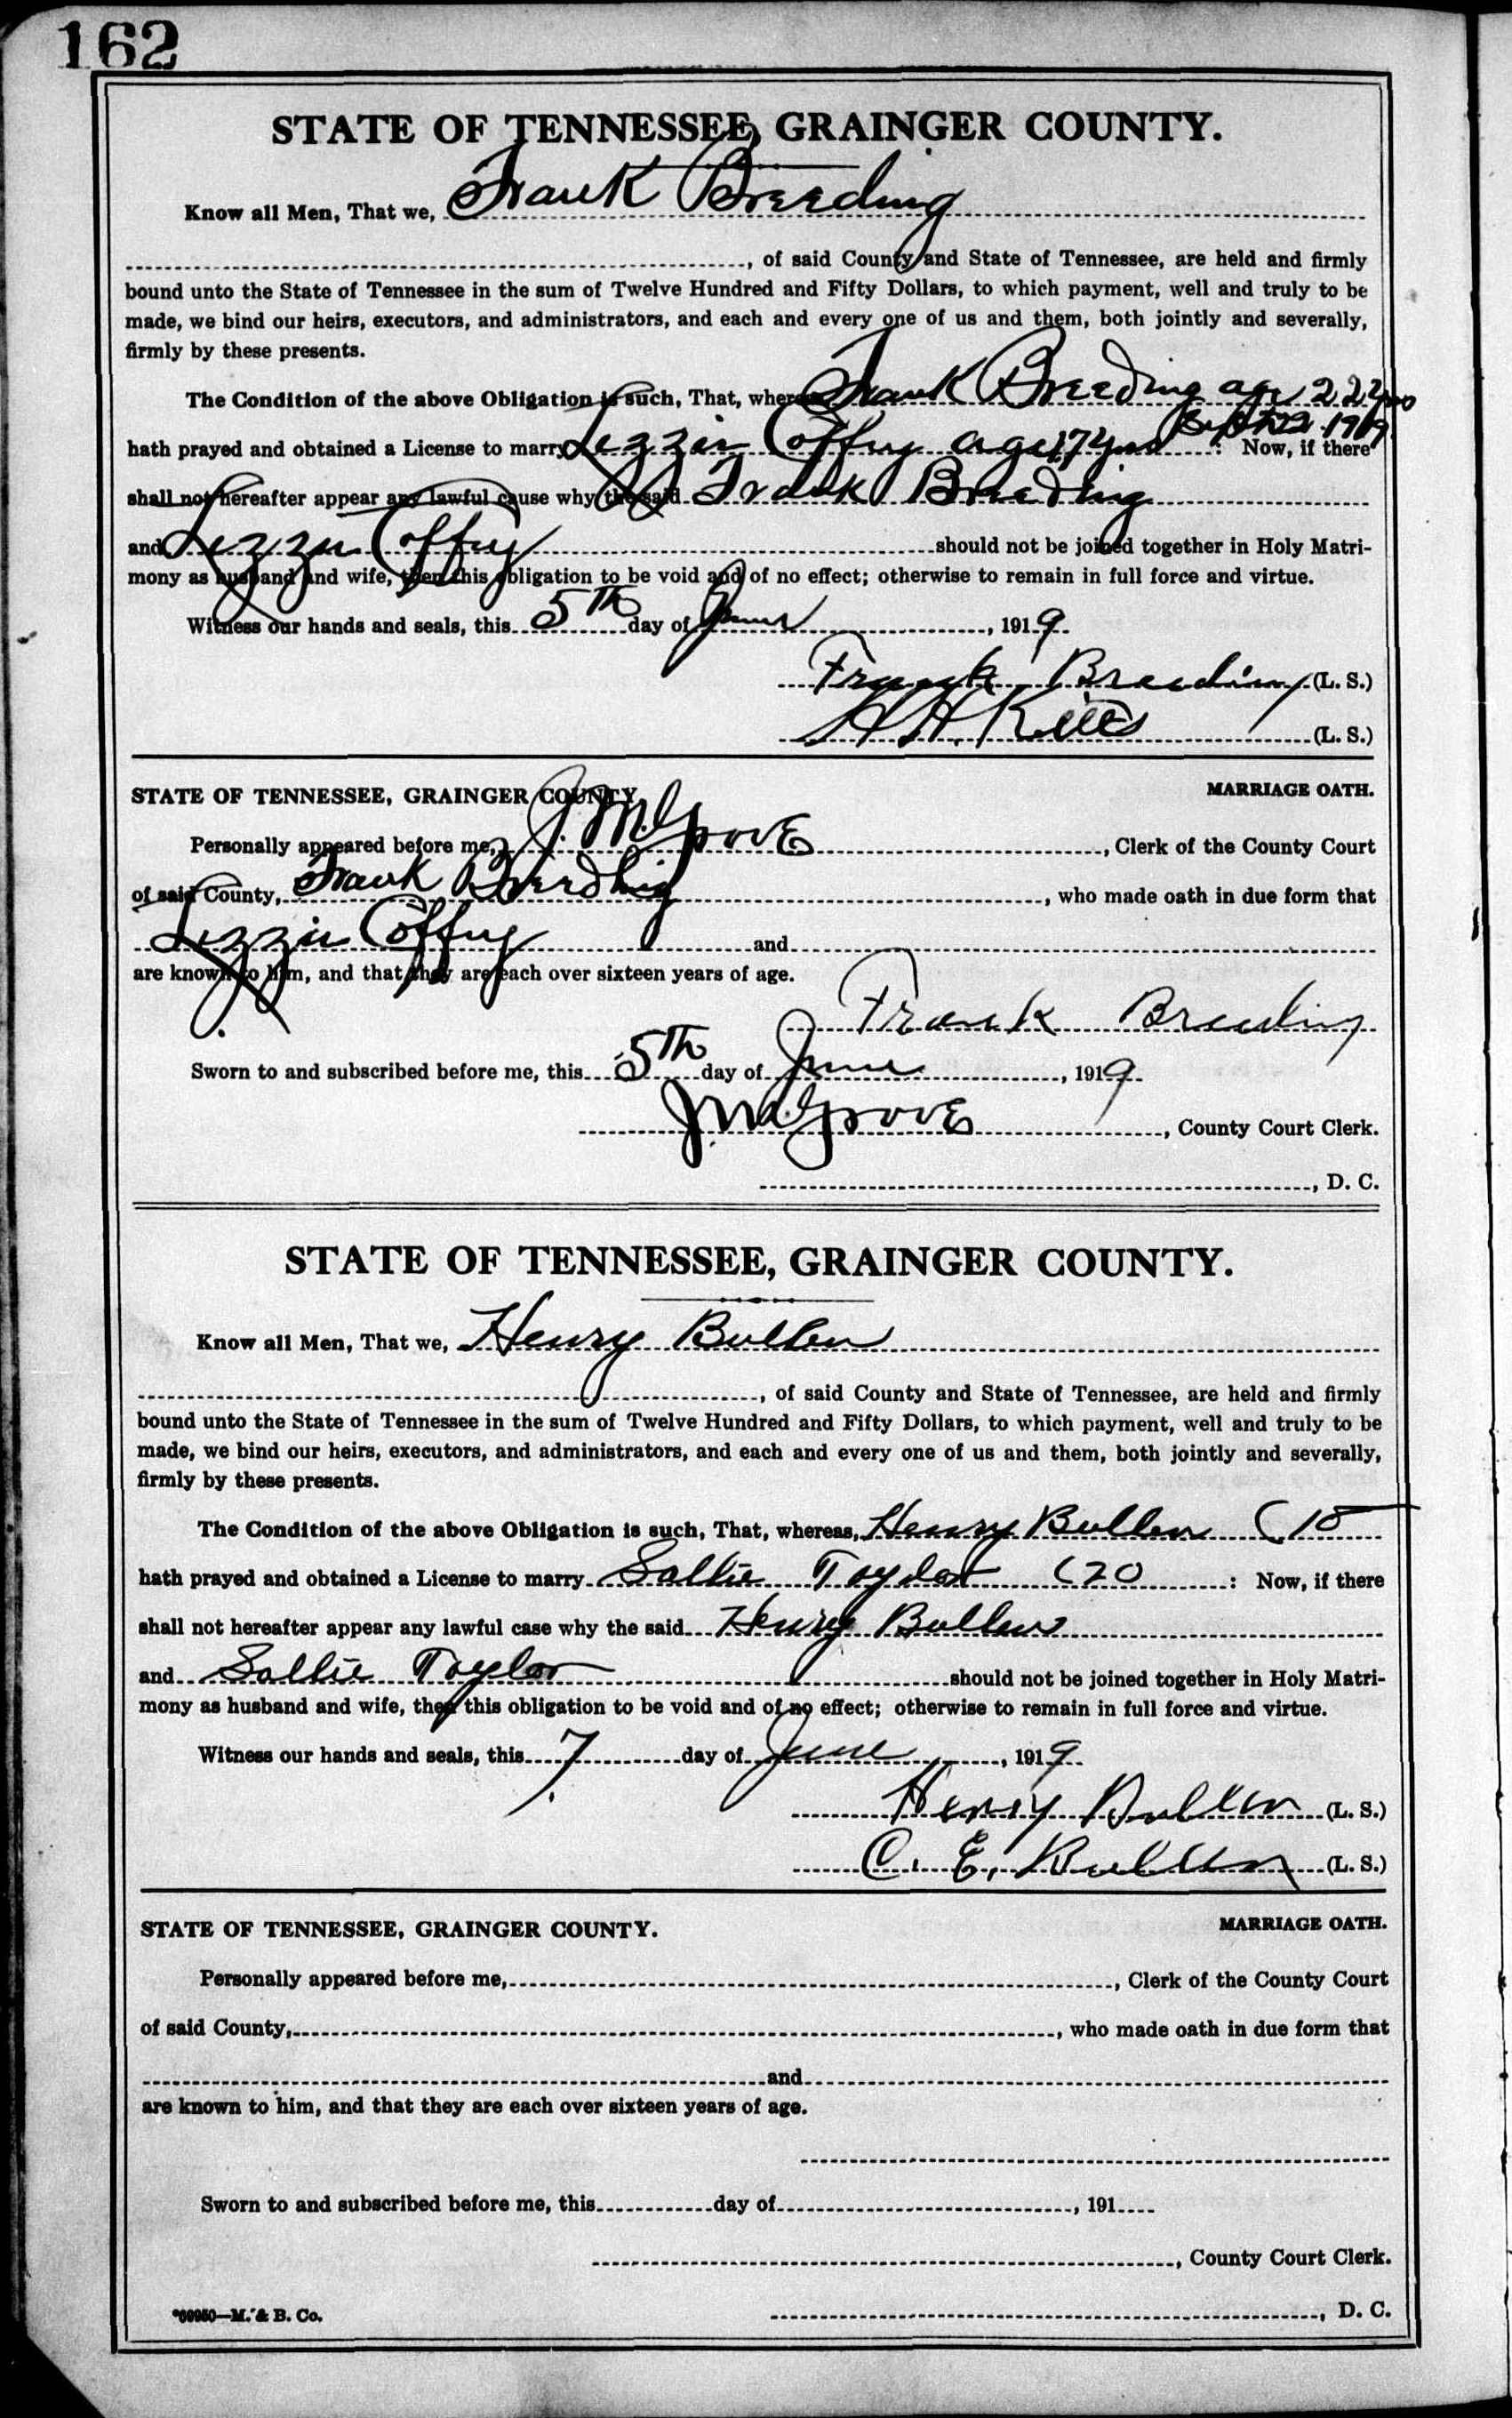 162
STATE OF TENNESSEE, GRAINGER COUNTY.
Know all Men, That we, Frank Breeding
, of said County and State of Tennessee, are held and firmly
bound unto the State of Tennessee in the sum of Twelve Hundred and Fifty Dollars, to which payment, well and truly to be
made, we bind our heirs, executors, and administrators, and each and every one of us and them, both jointly and severally,
firmly by these presents.
The Condition of the above Obligation is such, That, whereas, Frank Breeding age 22 yrs
hath prayed and obtained a License to marry Lizzie Coffey age 17 yrs Sept 22 1919 : Now, if there
shall not hereafter appear any lawful cause why the said Frank Breeding
and Lizzie Coffey should not be joined together in Holy Matri-
mony as husband and wife, then this obligation to be void and of no effect; otherwise to remain in full force and virtue.
Witness our hands and seals, this 5th day of June, 1919
Frank Breeding (L. S.)
H. H. Kitts (L. S.)
STATE OF TENNESSEE, GRAINGER COUNTY. MARRIAGE OATH.
Personally appeared before me, J. M. Grove, Clerk of the County Court
of said County, Frank Breeding, who made oath in due form that
Lizzie Coffey and
are known to him, and that they are each over sixteen years of age.
Frank Breeding
Sworn to and subscribed before me, this 5th day of June, 1919
J. M. Grove, County Court Clerk.
, D. C.
STATE OF TENNESSEE, GRAINGER COUNTY.
Know all Men, That we, Henry Bullen
, of said County and State of Tennessee, are held and firmly
bound unto the State of Tennessee in the sum of Twelve Hundred and Fifty Dollars, to which payment, well and truly to be
made, we bind our heirs, executors, and administrators, and each and every one of us and them, both jointly and severally,
firmly by these presents.
The Condition of the above Obligation is such, That, whereas, Henry Bullen (18
hath prayed and obtained a License to marry Sallie Taylor (20 : Now, if there
shall not hereafter appear any lawful case why the said Henry Bullen
and Sallie Taylor should not be joined together in Holy Matri-
mony as husband and wife, then this obligation to be void and of no effect; otherwise to remain in full force and virtue.
Witness our hands and seals, this 7 day of June, 1919
Henry Bullen (L. S.)
C. E. Bullen (L. S.)
STATE OF TENNESSEE, GRAINGER COUNTY. MARRIAGE OATH.
Personally appeared before me, , Clerk of the County Court
of said County, , who made oath in due form that
and
are known to him, and that they are each over sixteen years of age.
Sworn to and subscribed before me, this day of , 191
, County Court Clerk.
*69950—M. & B. Co. , D. C.